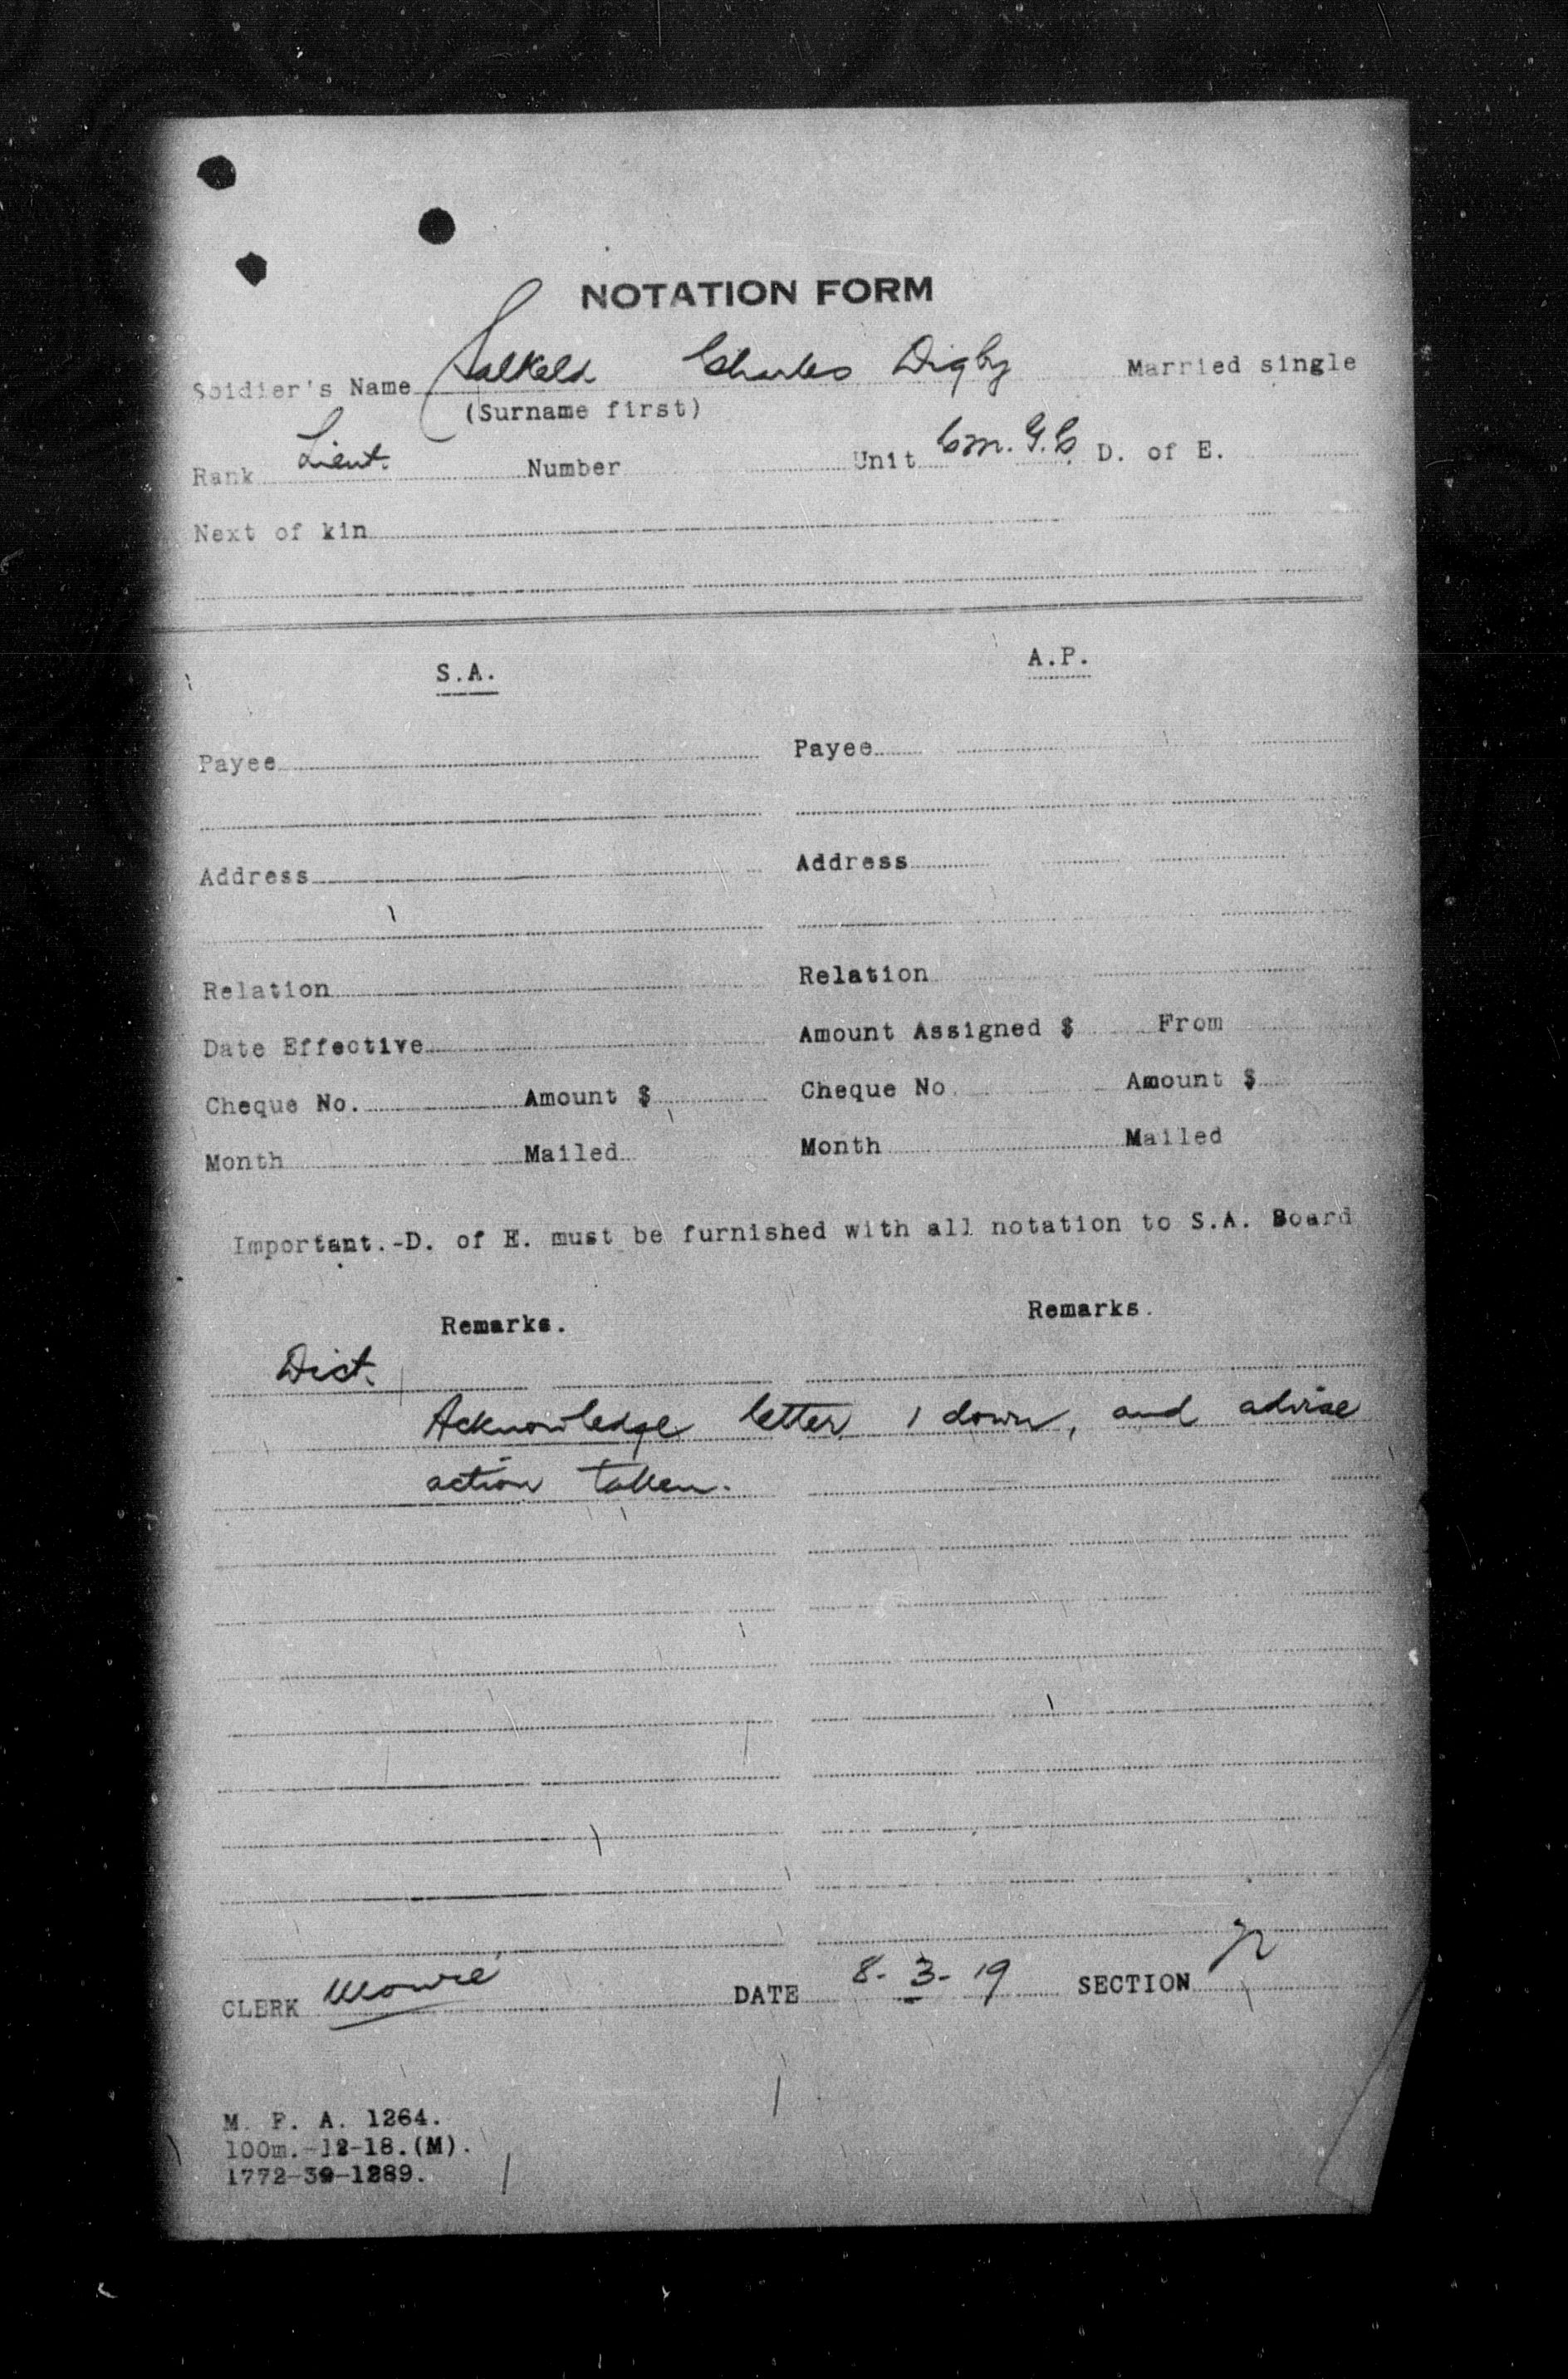 NOTATION FORM
Soldier's Name Salkeld Charles Digby Married single
(Surname first)
Rank Lieut. Number Unit C.M.G.C. D. of E.
Next of kin
S.A. A.P.
Payee Payee
Address Address
Relation Relation
Date Effective Amount Assigned $ From
Cheque No. Amount $ Cheque No. Amount $
Month Mailed Month Mailed
Important.-D. of E. must be furnished with all notation to S.A. Board
Remarks. Remarks.
Dict.
Acknowledge letter 1 down, and advise
action taken.
CLERK DATE 8-3-19 SECTION
M. F. A. 1264.
100m.-12-18.(M).
1772-39-1289.